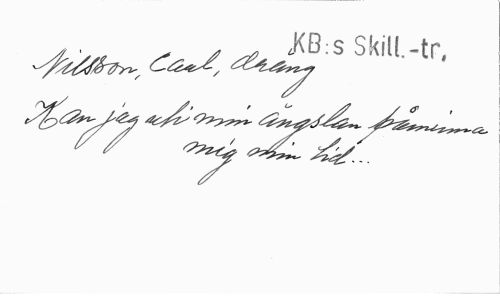 KB:s Skill.-tr.
Nilsson, Carl, dräng
Kan jag uti min ängslan påminna
mig min tid...